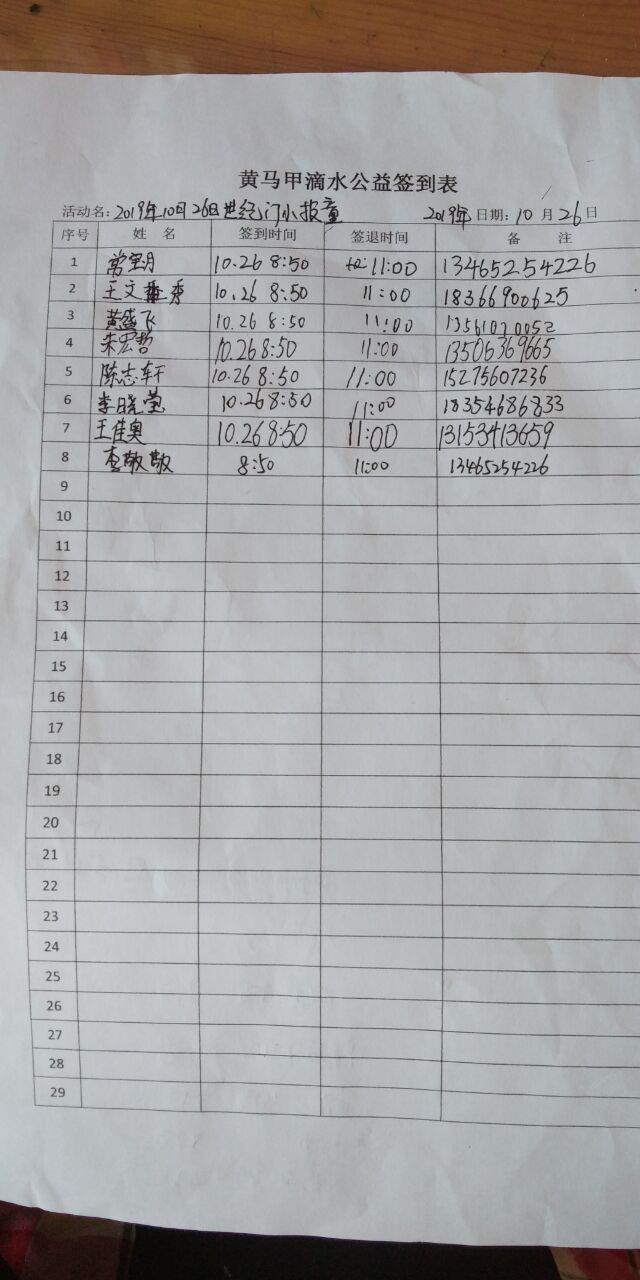 黄马甲滴水公益签到表
活动名：2019年10月26日世纪门小报童 2019年 日期：10月26日
序号 姓 名 签到时间 签退时间 备 注
1 常玺月 10.26 8:50 11:00 13465254226
2 王文秀 10.26 8:50 11:00 18366900625
3 黄盛飞 10.26 8:50 11:00 13561070052
4 朱宏哲 10.26 8:50 11:00 13506369665
5 陈志轩 10.26 8:50 11:00 15275607236
6 李晓莹 10.26 8:50 11:00 18354686833
7 王佳奥 10.26 8:50 11:00 13153413659
8 李敬敬 8:50 11:00 13465254226
9
10
11
12
13
14
15
16
17
18
19
20
21
22
23
24
25
26
27
28
29